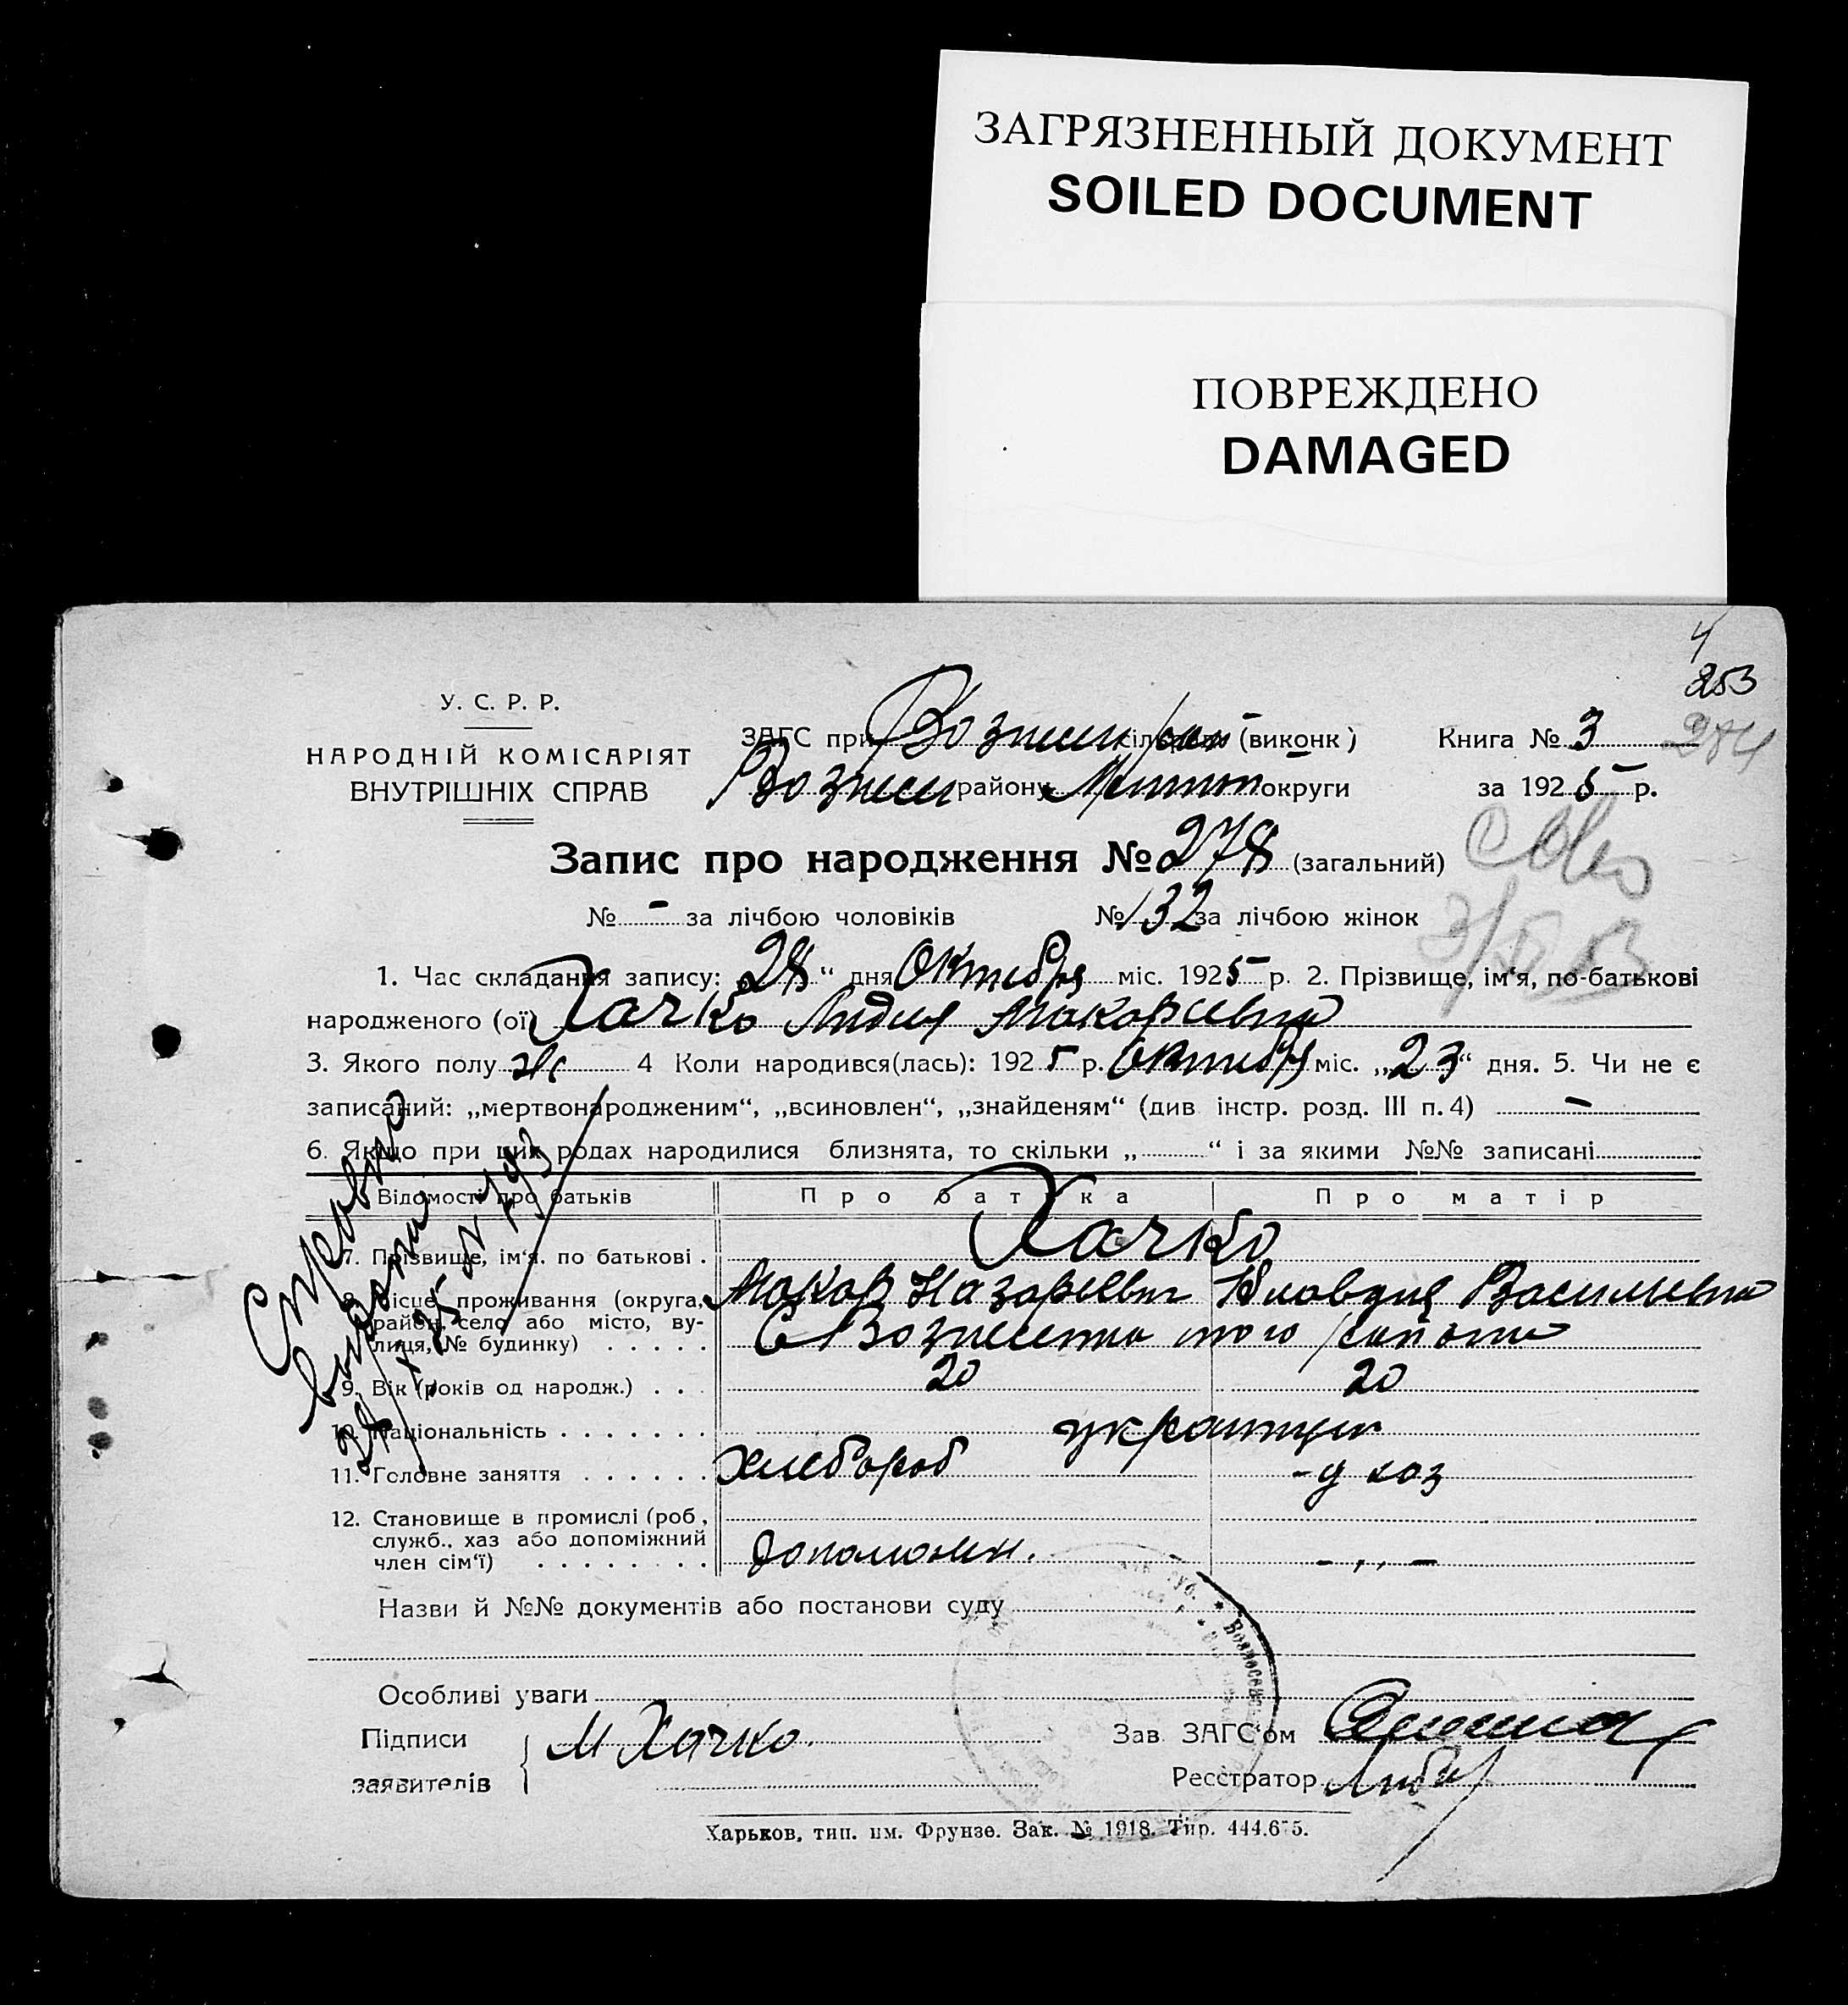 ЗАГРЯЗНЕННЫЙ ДОКУМЕНТ
SOILED DOCUMENT
ПОВРЕЖДЕНО
DAMAGED
4
253
284
У. С. Р. Р.
НАРОДНІЙ КОМІСАРІЯТ
ВНУТРІШНІХ СПРАВ
ЗАГС при Вознесен (виконк)
Вознесен району Мелитоп округи
Книга № 3
за 1925 р.
Запис про народження № 278 (загальний)
№ - за лічбою чоловіків № 132 за лічбою жінок
1. Час складання запису: „28“ дня Октября міс. 1925 р. 2. Прізвище, ім'я, по-батькові
народженого (ої) Хачко Лидия Макарьевна
3. Якого полу ж 4 Коли народився(лась): 1925 р. Октября міс. „23“ дня. 5. Чи не є
записаний: „мертвонародженим“, „всиновлен“, „знайденям“ (див інстр. розд. III п. 4) -
6. Якщо при цих родах народилися близнята, то скільки „ “ і за якими №№ записані
Відомості про батьків Про батька Про матір
7. Прізвище, ім'я. по батькові . Хачко
Макар Назарьевич Клавдия Васильевна
8. Місце проживання (округа, район, село або місто, вулиця, № будинку) . . . . . С Вознесенка того района
9. Вік (років од народж.) . . . 20 20
10. Національність . . . . . . . украинцы
11. Головне заняття . . . . . . хлебороб - д хоз
12. Становище в промислі (роб, служб., хаз або допоміжний член сім'ї) . . . . . . . . допоможн. - „ -
Назви й №№ документів або постанови суду
Особливі уваги
Підписи
заявителів
М Хачко.
Зав. ЗАГС'ом
Реєстратор
Харьков, тип. им. Фрунзе. Зак. № 1918. Тир. 444.675.